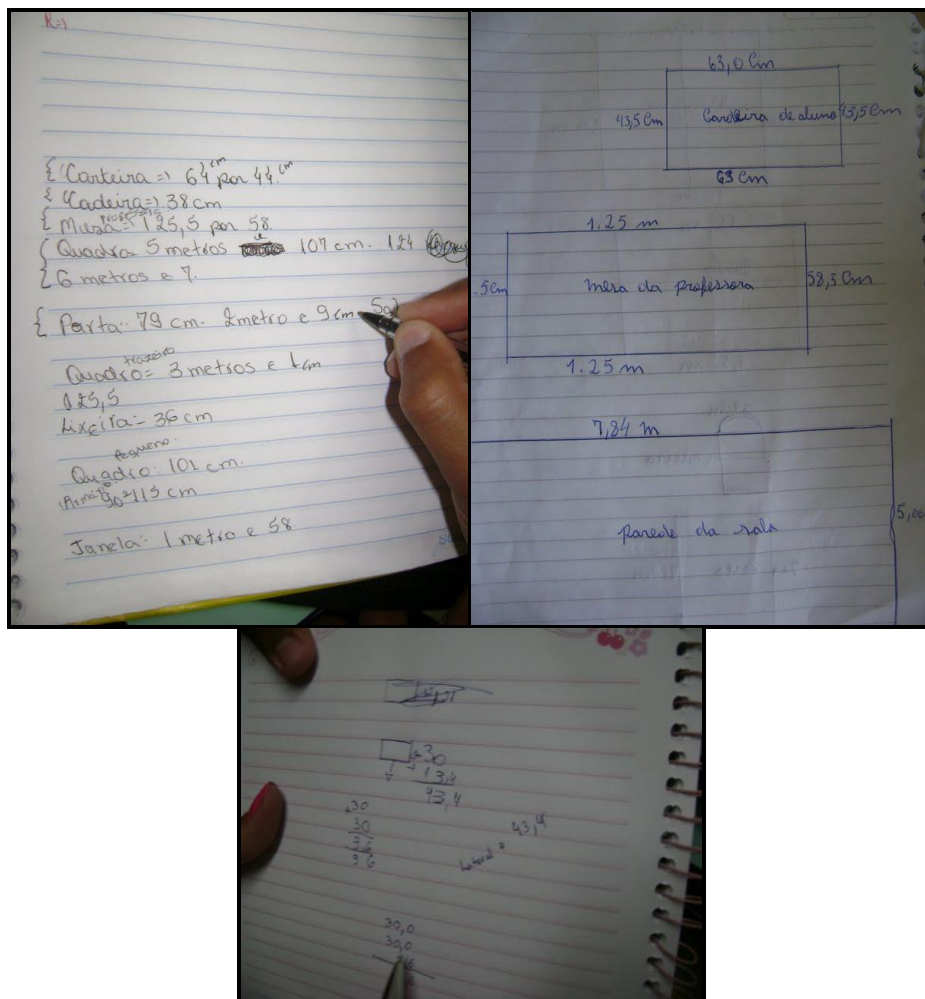 { Carteira => 64 cm por 44 cm
{ Cadeira => 38 cm
{ Mesa = 125,5 por 58.
{ Quadro = 5 metros e 107 cm. 124
{ 6 metros e 7.
{ Porta: 79 cm. 2 metro e 9 cm
trazeiro
Quadro = 3 metros e 1 cm
125,5
Lixeira = 36 cm
Pequeno.
Quadro: 101 cm.
113 cm
Janela: 1 metro e 58.
63,0 Cm
43,5 Cm Cardeira de aluno 43,5 Cm
63 Cm
1.25 m
.5 Cm mesa da professora 58,5 Cm
1.25 m
7,84 m
5,00
parede da sala
30
13,4
43,4
30
30
36
36
Lateral = 43,4
30,0
30,0